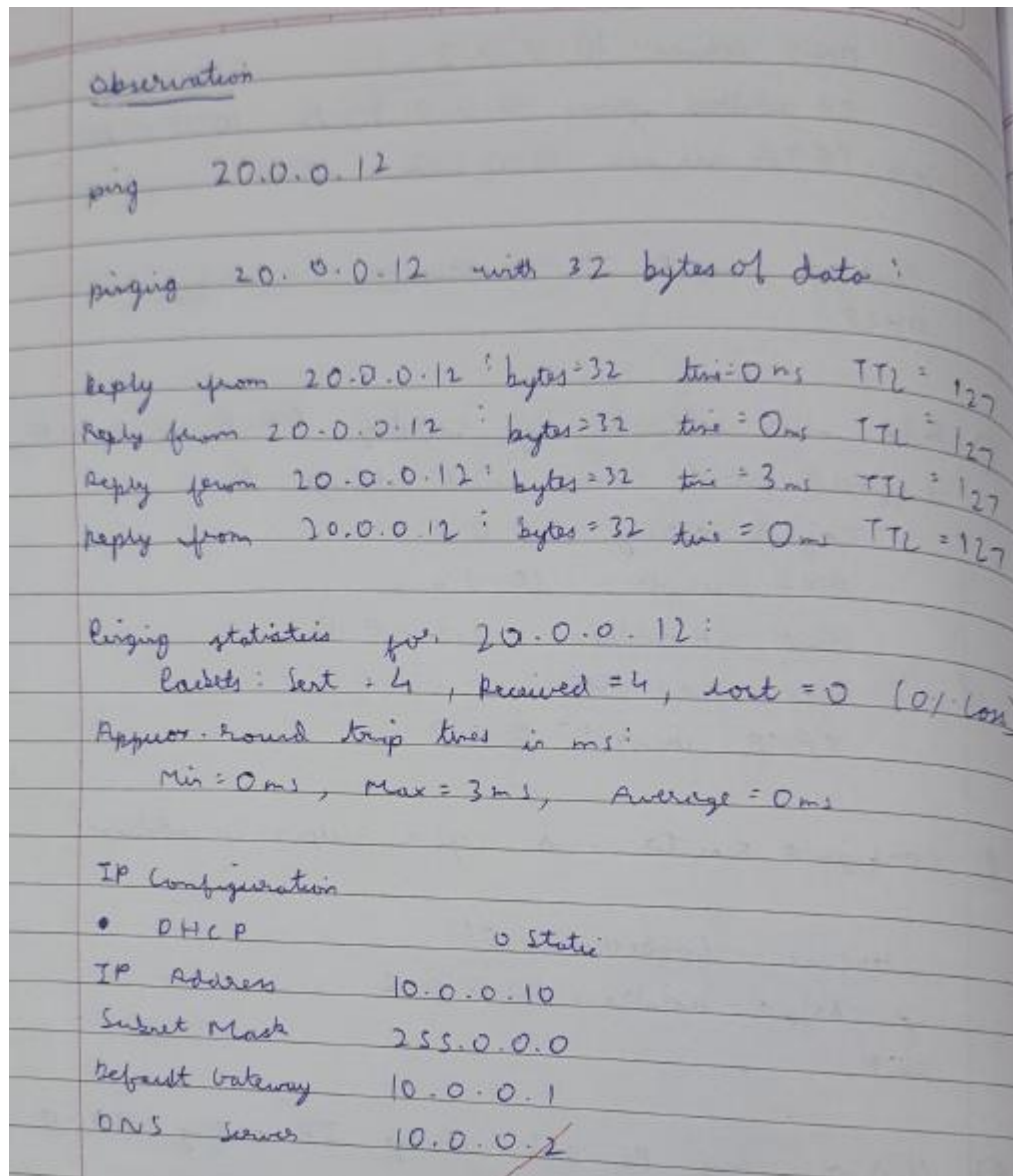 Observation
ping 20.0.0.12
pinging 20.0.0.12 with 32 bytes of data :
Reply from 20.0.0.12 : bytes=32 time=0ms TTL = 127
Reply from 20.0.0.12 : bytes=32 time = 0ms TTL = 127
Reply from 20.0.0.12 : bytes=32 time = 3ms TTL = 127
Reply from 20.0.0.12 : bytes = 32 time = 0ms TTL = 127
Pinging statistics for 20.0.0.12 :
Packets : Sent = 4 , Received = 4, Lost = 0 (0% Loss)
Approx. round trip times in ms :
Min = 0ms , Max = 3ms, Average = 0ms
IP Configuration
• DHCP o Static
IP Address 10.0.0.10
Subnet Mask 255.0.0.0
Default Gateway 10.0.0.1
DNS Server 10.0.0.2